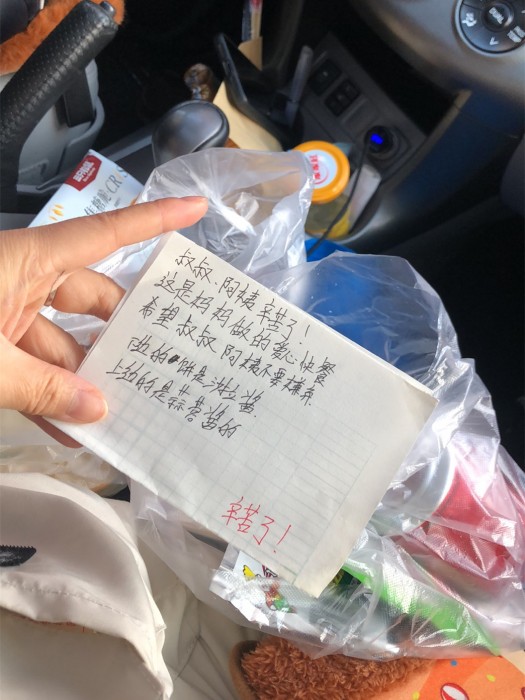 叔叔、阿姨辛苦了！
这是妈妈做的爱心快餐
希望叔叔阿姨不要嫌弃
的饼是沙拉酱
上的是蒜蓉酱的
辛苦了！